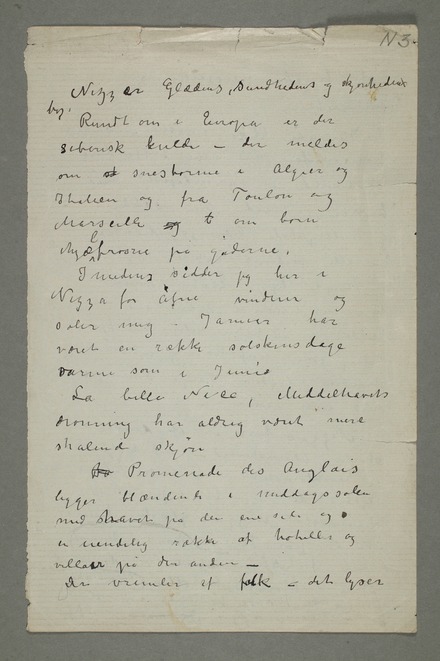 N3.
Nizz er Glædens, Sundhedens og skjønhedens
by.
Rundt om i Europa er der
siberisk kulde – der meldes
om snestorme i Algier og
Italien og fra Toulon og
Marseille om børn
ihjælfrosne på gaderne.
Imedens sidder jeg her i
Nizza for åpne vinduer og
soler mig – Januar har
været en række solskinsdage
varme som i Junis
La belle Nice, Middelhavets
dronning har aldrig været mere
stralende skjøn
Promenade des Anglais
ligger blændende i middagssolen
med havet på den ene side og
en uendelig række af hoteller og
villaer på den anden –
Der vrimler af folk – det lyser